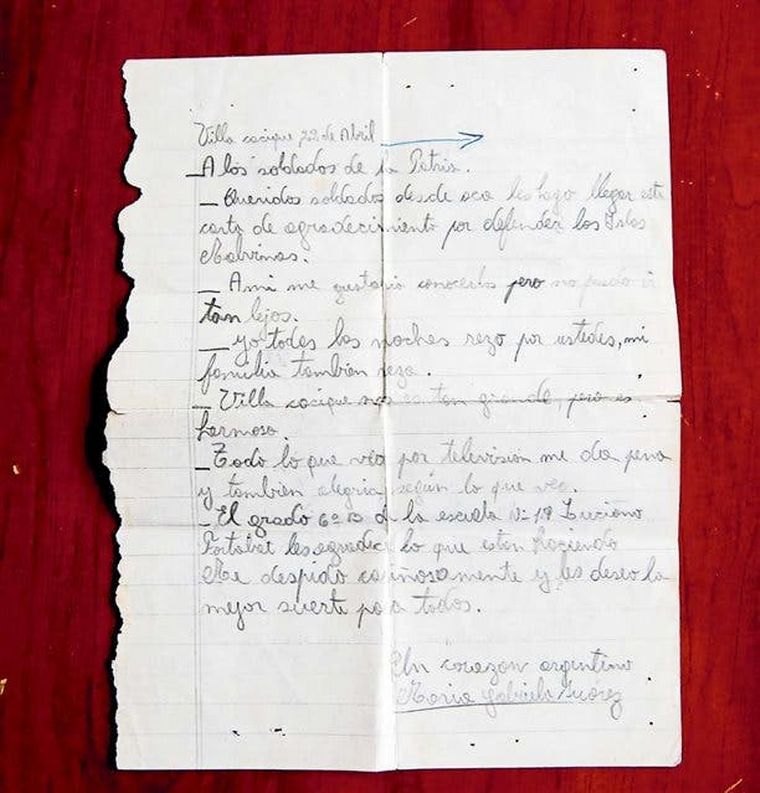 Villa cacique 22 de Abril
_A los soldados de la Patria.
_ Queridos soldados desde aca les hago llegar esta
carta de agradecimiento por defender las Islas
Malvinas.
_ A mi me gustaria conocerlos pero no puedo ir
tan lejos.
_ yo todas las noches rezo por ustedes, mi
familia tambien reza.
_ Villa cacique no es tan grande, pero es
hermosa.
_Todo lo que veo por television me da pena
y tambien alegria según lo que veo.
_El grado 6º B de la escuela Nº 19 Luciano
Fortabat les agradece lo que estan haciendo
Me despido cariñosamente y les deseo la
mejor suerte para todos.
Un corazon argentino
Maria Gabriela Suárez